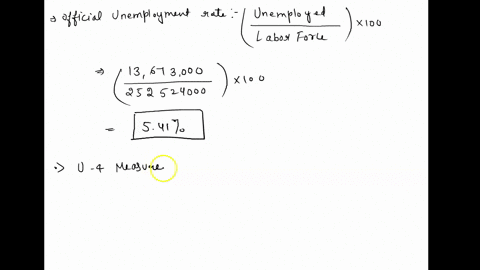 → Official Unemployment rate :- (Unemployed / Labor Force) × 100
⇒ (13,673,000 / 252524000) × 100
= 5.41%
→ U-4 Measure